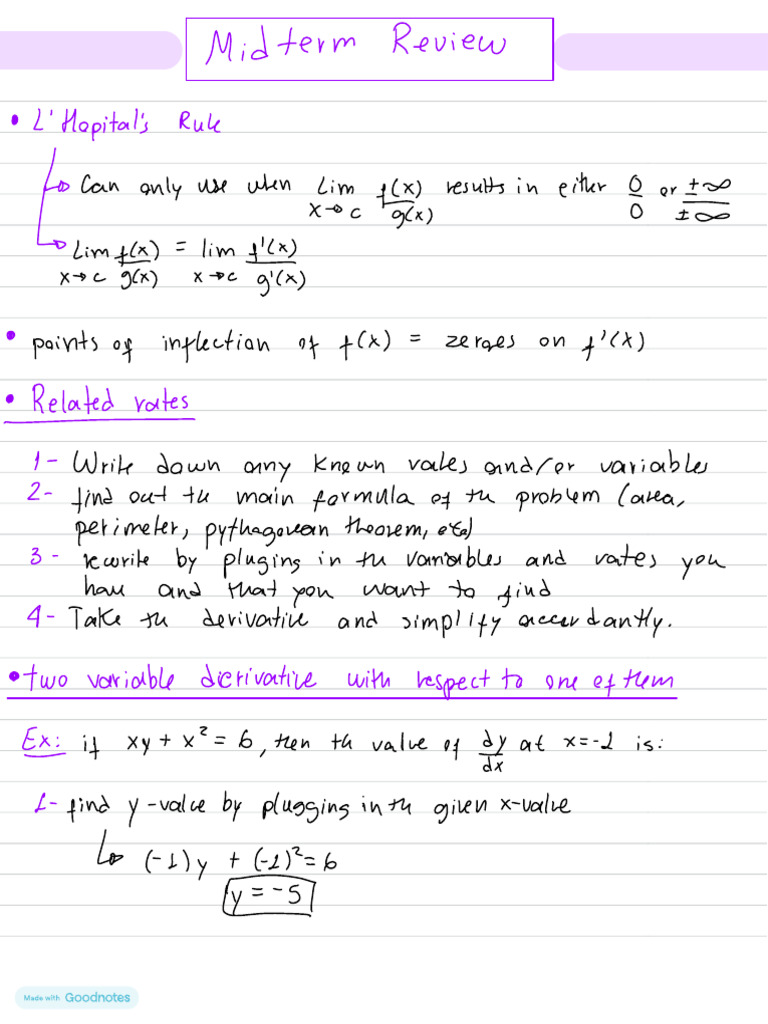 Midterm Review
• L'Hopital's Rule
→ Can only use when lim x→c f(x)/g(x) results in either 0/0 or ±∞/±∞
→ Lim x→c f(x)/g(x) = lim x→c f'(x)/g'(x)
• points of inflection of f(x) = zeroes on f'(x)
• Related rates
1- Write down any known vales and/or variables
2- find out the main formula of the problem (area,
perimeter, pythagorean theorem, etc)
3- rewrite by pluging in the variables and rates you
have and that you want to find
4- Take the derivative and simplify accordantly.
• two variable derivative with respect to one of them
Ex: if xy + x² = 6, then the value of dy/dx at x=-1 is:
1- find y-value by plugging in the given x-value
→ (-1)y + (-1)² = 6
y = -5
Made with Goodnotes